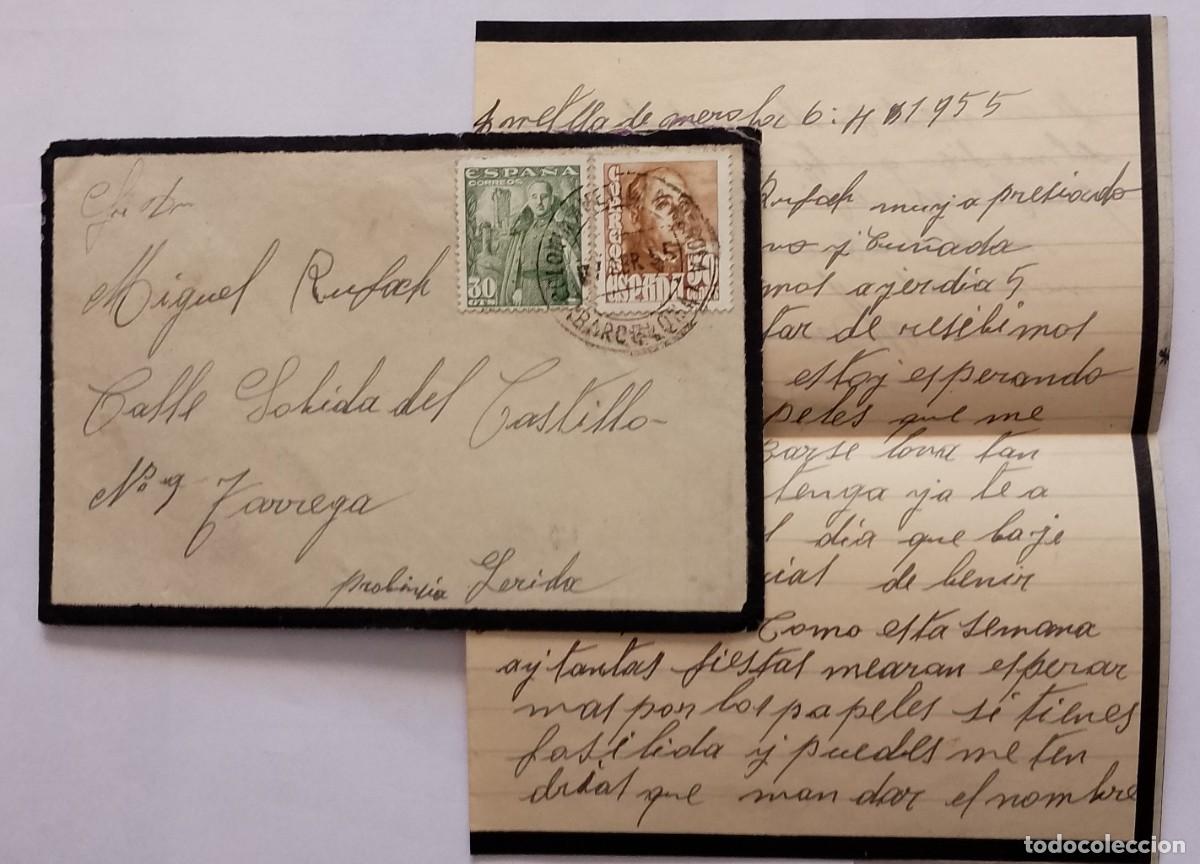 Miguel Rufach
Calle Subida del Castillo
Nº 9 Tarrega
probinsia Lerida
ESPAÑA
CORREOS
30
CTS
ESPAÑA
BARCELONA
Ametlla de merola 6:4 1955
Rufach muy apresiado
y Cuñada
ayer dia 5
tar de resibimos
estoy esperando
peles que me
tan
tenga ya te a
dia que baje
de benir
Como esta semana
ay tantas fiestas mearan esperar
mas por los papeles si tienes
fosilida y puedes me ten
drias que man dar el nombre
todocoleccion